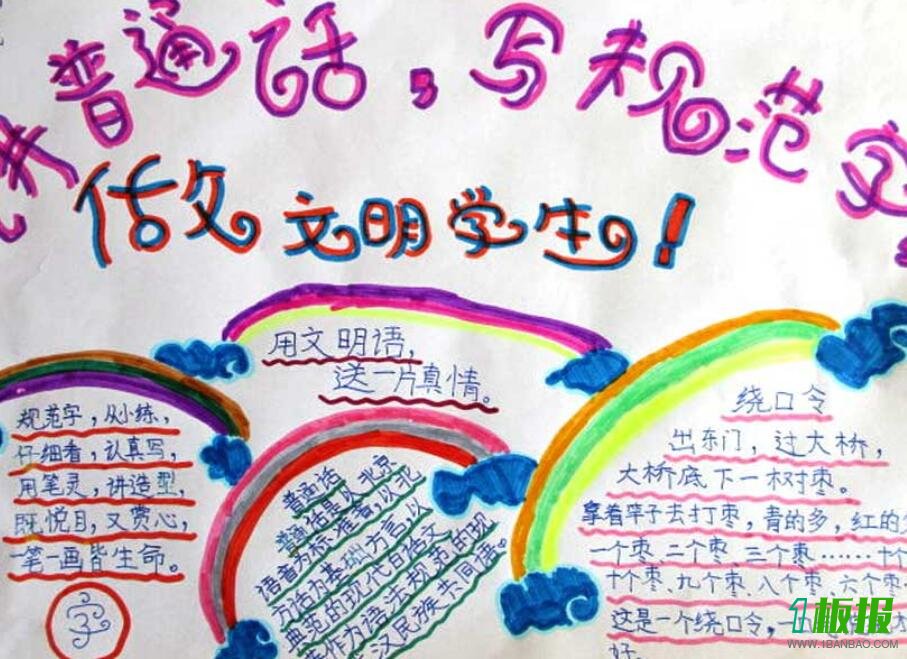 讲普通话，写规范字
做文明学生！
用文明语，
送一片真情。
规范字，从小练，
仔细看，认真写，
用笔灵，讲造型，
既悦目，又赏心，
一笔一画皆生命。
字
普通话
普通话是以北京
语音为标准音，以北
方话为基础方言，以
典范的现代白话文
著作为语法规范的现
代汉民族共同语。
绕口令
出东门，过大桥，
大桥底下一树枣。
拿着竿子去打枣，青的多，红的少
一个枣、二个枣 三个枣……十个
十个枣、九个枣、八个枣 六个枣
这是一个绕口令，一
好。
1板报
WWW.1BANBAO.COM